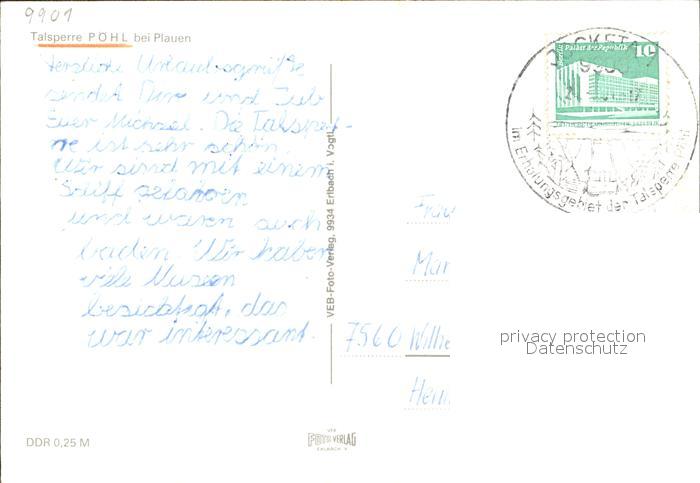 9901
Talsperre PÖHL bei Plauen
Herzliche Urlaubsgrüße
sendet Dir und Euch
Euer Michael. Die Talsper-
re ist sehr schön.
Wir sind mit einem
Schiff gefahren
und waren auch
baden. Wir haben
viele Museen
besichtigt, das
war interessant.
VEB-Foto-Verlag, 9934 Erlbach i. Vogtl.
Palast der Republik
10
Im Erholungsgebiet der Talsperre Pöhl
Frau
7560 Wilhe
privacy protection
Datenschutz
DDR 0,25 M
VEB
FOTO VERLAG
ERLBACH V.